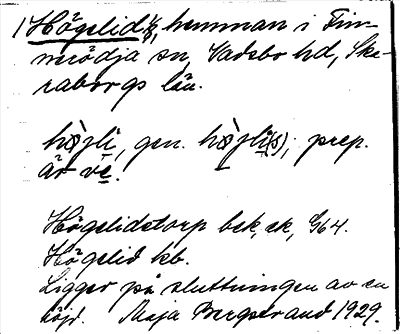 1 Högelid 1/4, hemman i Fin-
nerödja sn, Vadsbo hd, Ska-
raborgs län.
højli, gen. højli(s); prep.
är ve.
Högelidstorp bek, ek, G64.
Högelid kb.
Ligger på sluttningen av en
höjd. Maja Bergstrand 1929.